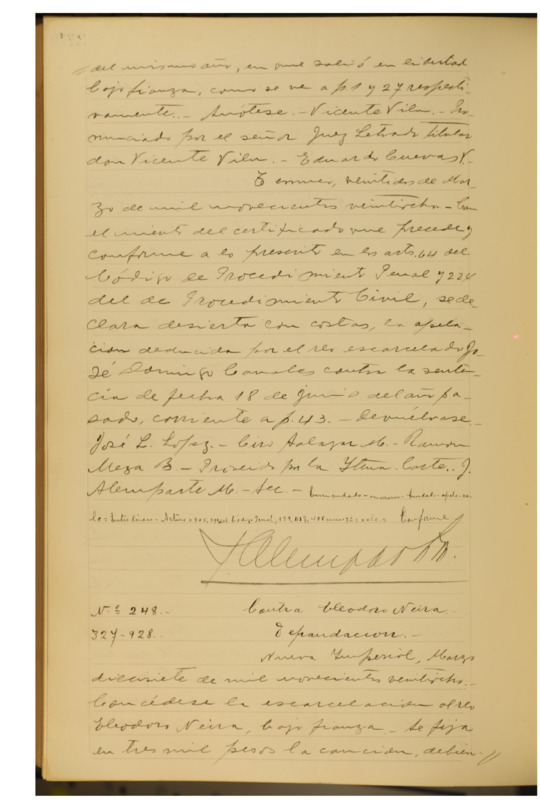 del mismo año, en que salió en libertad
bajo fianza, como se ve a f 1 y 27 respecti-
vamente.- Anótese.- Vicente Vila.- Pro-
nunciado por el señor Juez Letrado titular
don Vicente Vila.- Eduardo Cuevas V.
Temuco, veintidos de Mar-
zo de mil novecientos veintiocho.- Con
el mérito del certificado que precede y
conforme a lo en los arts. 64 del
Código de Procedimiento Penal y 224
del de Procedimiento Civil, se de-
clara desierta con costas, la apela-
cion deducida por el reo escarcelado Jo-
sé Domingo Canales contra la senten-
cia de fecha 18 de Junio del año pa-
sado, corriente a f 43.- Devuélvase.
José L. Lopez.- Ciro Salazar M.- Ramon
Meza B.- Proveido por la Iltma. Corte.. J.
Alemparte M.- Sec.-
Conforme
J Alemparte M.
Nº 248.- Contra Cleodoro Neira
327-928. Depandacion.-
Nueva Imperial, Marzo
diecisiete de mil novecientos veintiocho.-
Concédese la escarcelacion al reo
Cleodoro Neira, bajo fianza.- Se fija
en tres mil pesos la caucion, debien-